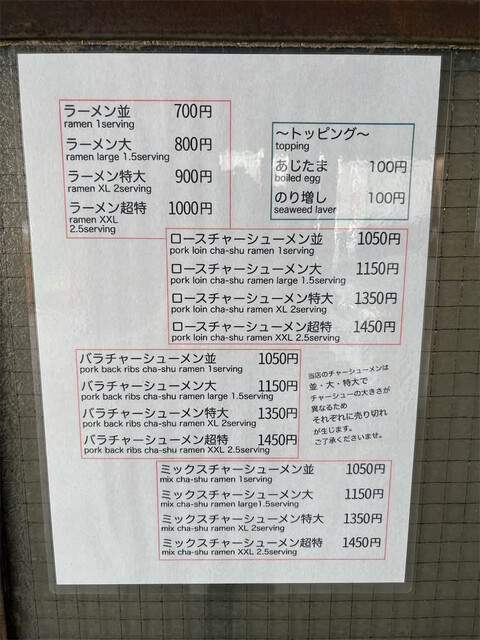 ラーメン並 700円
ramen 1serving
ラーメン大 800円
ramen large 1.5serving
ラーメン特大 900円
ramen XL 2serving
ラーメン超特 1000円
ramen XXL
2.5serving
～トッピング～
topping
あじたま 100円
boiled egg
のり増し 100円
seaweed laver
ロースチャーシューメン並 1050円
pork loin cha-shu ramen 1serving
ロースチャーシューメン大 1150円
pork loin cha-shu ramen large 1.5serving
ロースチャーシューメン特大 1350円
pork loin cha-shu ramen XL 2serving
ロースチャーシューメン超特 1450円
pork loin cha-shu ramen XXL 2.5serving
バラチャーシューメン並 1050円
pork back ribs cha-shu ramen 1serving
バラチャーシューメン大 1150円
pork back ribs cha-shu ramen large 1.5serving
バラチャーシューメン特大 1350円
pork back ribs cha-shu ramen XL 2serving
バラチャーシューメン超特 1450円
pork back ribs cha-shu ramen XXL 2.5serving
当店のチャーシューメンは
並・大・特大で
チャーシューの大きさが
異なるため
それぞれに売り切れ
が生じます。
ご了承くださいませ。
ミックスチャーシューメン並 1050円
mix cha-shu ramen 1serving
ミックスチャーシューメン大 1150円
mix cha-shu ramen large1.5serving
ミックスチャーシューメン特大 1350円
mix cha-shu ramen XL 2serving
ミックスチャーシューメン超特 1450円
mix cha-shu ramen XXL 2.5serving